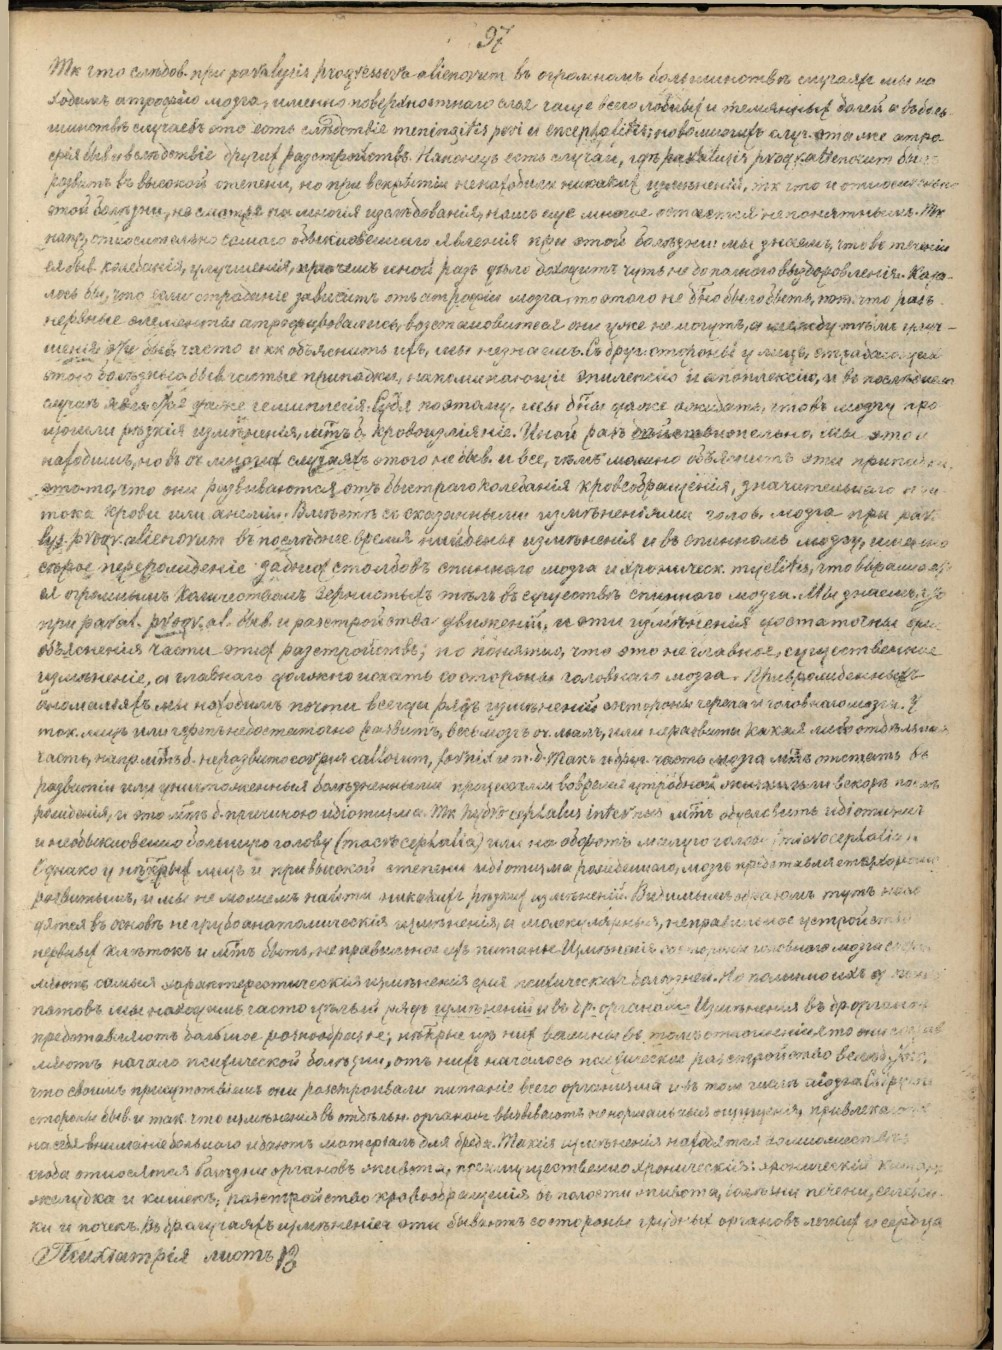 97
Тк что слѣдов. при paralysis progressiva alienorum въ огромномъ большинствѣ случаяхъ мы на
ходимъ атрофію мозга, именно поверхностнаго слоя чаще всего лобныхъ и темянныхъ долей и въ боль
шинствѣ случаевъ это есть слѣдствіе meningitis и encephalitis; но во многихъ случ. эта же атро
фія быв. и вслѣдствіе другихъ разстройствъ. Наконецъ есть случаи, гдѣ paralysis progr. alienorum былъ
развитъ въ высокой степени, но при вскрытіи не находили никакихъ измѣненій, тк что и относительно
этой болѣзни, не смотря на многія изслѣдованія, намъ еще многое остается непонятнымъ. Тк
напр, относительно самаго обыкновеннаго явленія при этой болѣзни: мы знаемъ, что въ теченіи
ея быв. колебанія, улучшенія, причемъ иной разъ дѣло доходитъ чуть не до полнаго выздоровленія. Каза-
лось бы, что если страданіе зависитъ отъ атрофіи мозга, то этого не должно было быть, пот. что разъ
нервные элементы атрофировались, возстановиться они уже не могутъ, а между тѣмъ улуч-
шенія эти быв. часто и кк объяснить ихъ, мы не знаемъ. Съ друг. стороны у лицъ, страдающихъ
этою болѣзнью быв. частые припадки, напоминающіе эпилепсію и апоплексію, и въ послѣднемъ
случаѣ является даже гемиплегія. Судя поэтому, мы были даже ожидать, что въ мозгу про
изошли рѣзкія измѣненія, мтъ б. кровоизліяніе. Иной разъ дѣйствительно, мы это и
находимъ, но въ оч. многихъ случаяхъ этого не быв. и все, чѣмъ можно объяснить эти припадки,
это то, что они развиваются отъ быстраго колебанія кровообращенія, значительнаго при
тока крови или анеміи. Вмѣстѣ со сказанными измѣненіями голов. мозга при para
lys. progr. alienorum въ послѣднее время найдены измѣненія и въ спинномъ мозгу, именно
сѣрое перерожденіе заднихъ столбовъ спиннаго мозга и хроническ. myelitis, что выражает
ся огромнымъ количествомъ зернистыхъ тѣлъ въ существѣ спинного мозга. Мы знаемъ, что
при paral. progr. al. быв. и разстройства движеній, и эти измѣненія достаточны для
объясненія части этихъ разстройствъ; но понятно, что это не главное, существенное
измѣненіе, а главнаго должно искать со стороны головнаго мозга. При врожденныхъ
аномаліяхъ мы находимъ почти всегда рядъ измѣненій со стороны черепа и головного мозга. У
так. лицъ или черепъ недостаточно развитъ, весь мозгъ оч. малъ, или неразвита какая либо отдѣльная
часть, напр мтъ б. неразвито corpus callosum, fornix и т.д. Такъ и друг. часть мозга мтъ отстать въ
развитіи или уничтоженныя болѣзненными процессами во время утробной жизни или вскорѣ послѣ
рожденія, и это мтъ б. причиною идіотизма. Тк hydrocephalus internus мтъ обусловить идіотизмъ
и необыкновенно большую голову (macrocephalia) или на оборотъ малую голову (microcephalia).
Однако у нѣкоторыхъ лицъ и при высокой степени идіотизма рожденнаго, мозгъ представляется хорошо
развитымъ, и мы не можемъ найти никакихъ рѣзкихъ измѣненій. Видимымъ образомъ тутъ нахо
дятся въ основѣ не грубо анатомическія измѣненія, а молекулярныя, неправильное устройство
нервныхъ клѣтокъ и мтъ быть, неправильное ихъ питаніе. Измѣненія со стороны головного мозга состав
ляютъ самыя характеристическія измѣненія для психическихъ болѣзней. Но помимо ихъ у
патовъ мы находимъ часто цѣлый рядъ измѣненій и въ др. органахъ. Измѣненія въ др. органахъ
представляютъ большое разнообразіе; нѣкоторые изъ нихъ важны въ томъ отношеніи, что они состав
ляютъ начало психической болѣзни, отъ нихъ началось психическое разстройство вслѣдствіе
что своимъ присутствіемъ они разстроивали питаніе всего организма и въ томъ числѣ мозга. Съ другой
стороны быв. и так. что измѣненія въ отдѣльн. органахъ вызываютъ ненормальныя ощущенія, привлекаютъ
на себя вниманіе больнаго и даютъ матеріалъ для бреда. Такія измѣненія находятся во множествѣ
сюда относятся болѣзни органовъ живота, преимущественно хроническія: хроническій катарръ
желудка и кишекъ, разстройство кровообращенія въ полости живота, болѣзни печени, селезен
ки и почекъ. Въ др. случаяхъ измѣненія эти бываютъ со стороны грудныхъ органовъ легкихъ и сердца
Психіатрія листъ 13